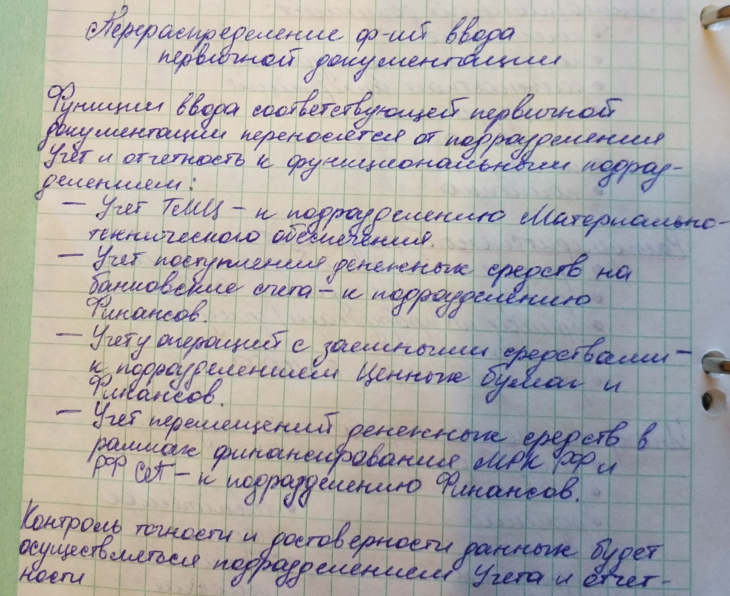 Перераспределение ф-ий ввода
первичной документации
Функции ввода соответствующей первичной
документации переносятся от подразделения
Учет и отчетность к функциональным подраз-
делением:
— Учет ТМЦ – к подразделению Материально-
технического обеспечения.
— Учет поступления денежных средств на
банковские счета – к подразделению
Финансов.
— Учету операций с заемными средствами –
к подразделением Ценных бумаг и
Финансов.
— Учет перемещений денежных средств в
рамках финансирования МРК РФ и
РФ СП – к подразделению Финансов.
Контроль точности и достоверности данных будет
осуществляться подразделением Учета и отчет-
ности